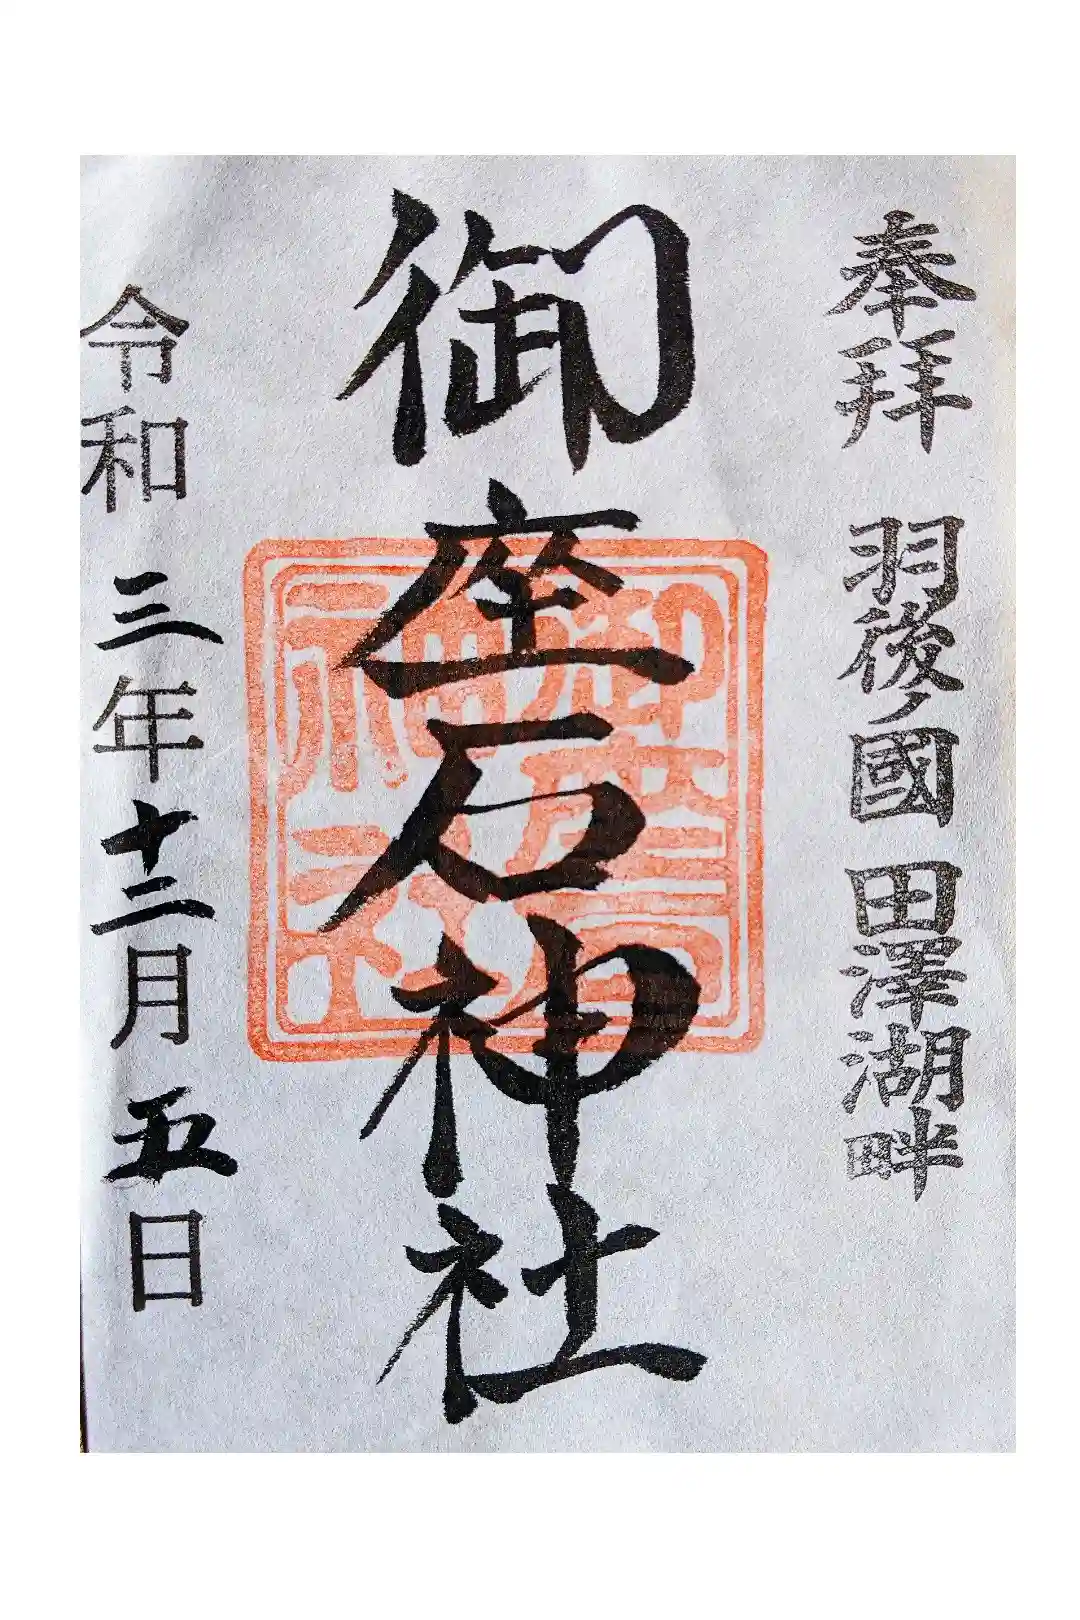 奉拜 羽後ノ國 田澤湖畔
御座石神社
令和三年十二月五日
御座石
神社